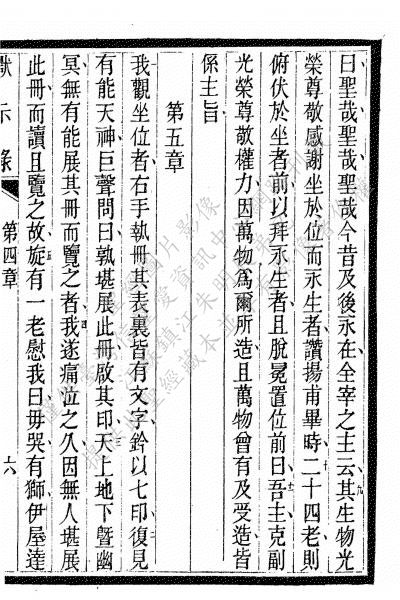 曰聖哉聖哉聖哉今昔及後永在全宰之主云其生物光
榮尊敬感謝坐於位而永生者讚揚甫畢時二十四老則
俯伏於坐者前以拜永生者且脫冕置位前曰吾主克副
光榮尊敬權力因萬物為爾所造且萬物曾有及受造皆
係主旨
第五章
我觀坐位者右手執冊其表裏皆有文字鈐以七印復見
有能天神巨聲問曰孰堪展此冊啟其印天上地下暨幽
冥無有能展其冊而覽之者我遂痛泣之久因無人堪展
此冊而讀且覽之故旋有一老慰我曰毋哭有獅伊屋達
默示錄
第四章
六